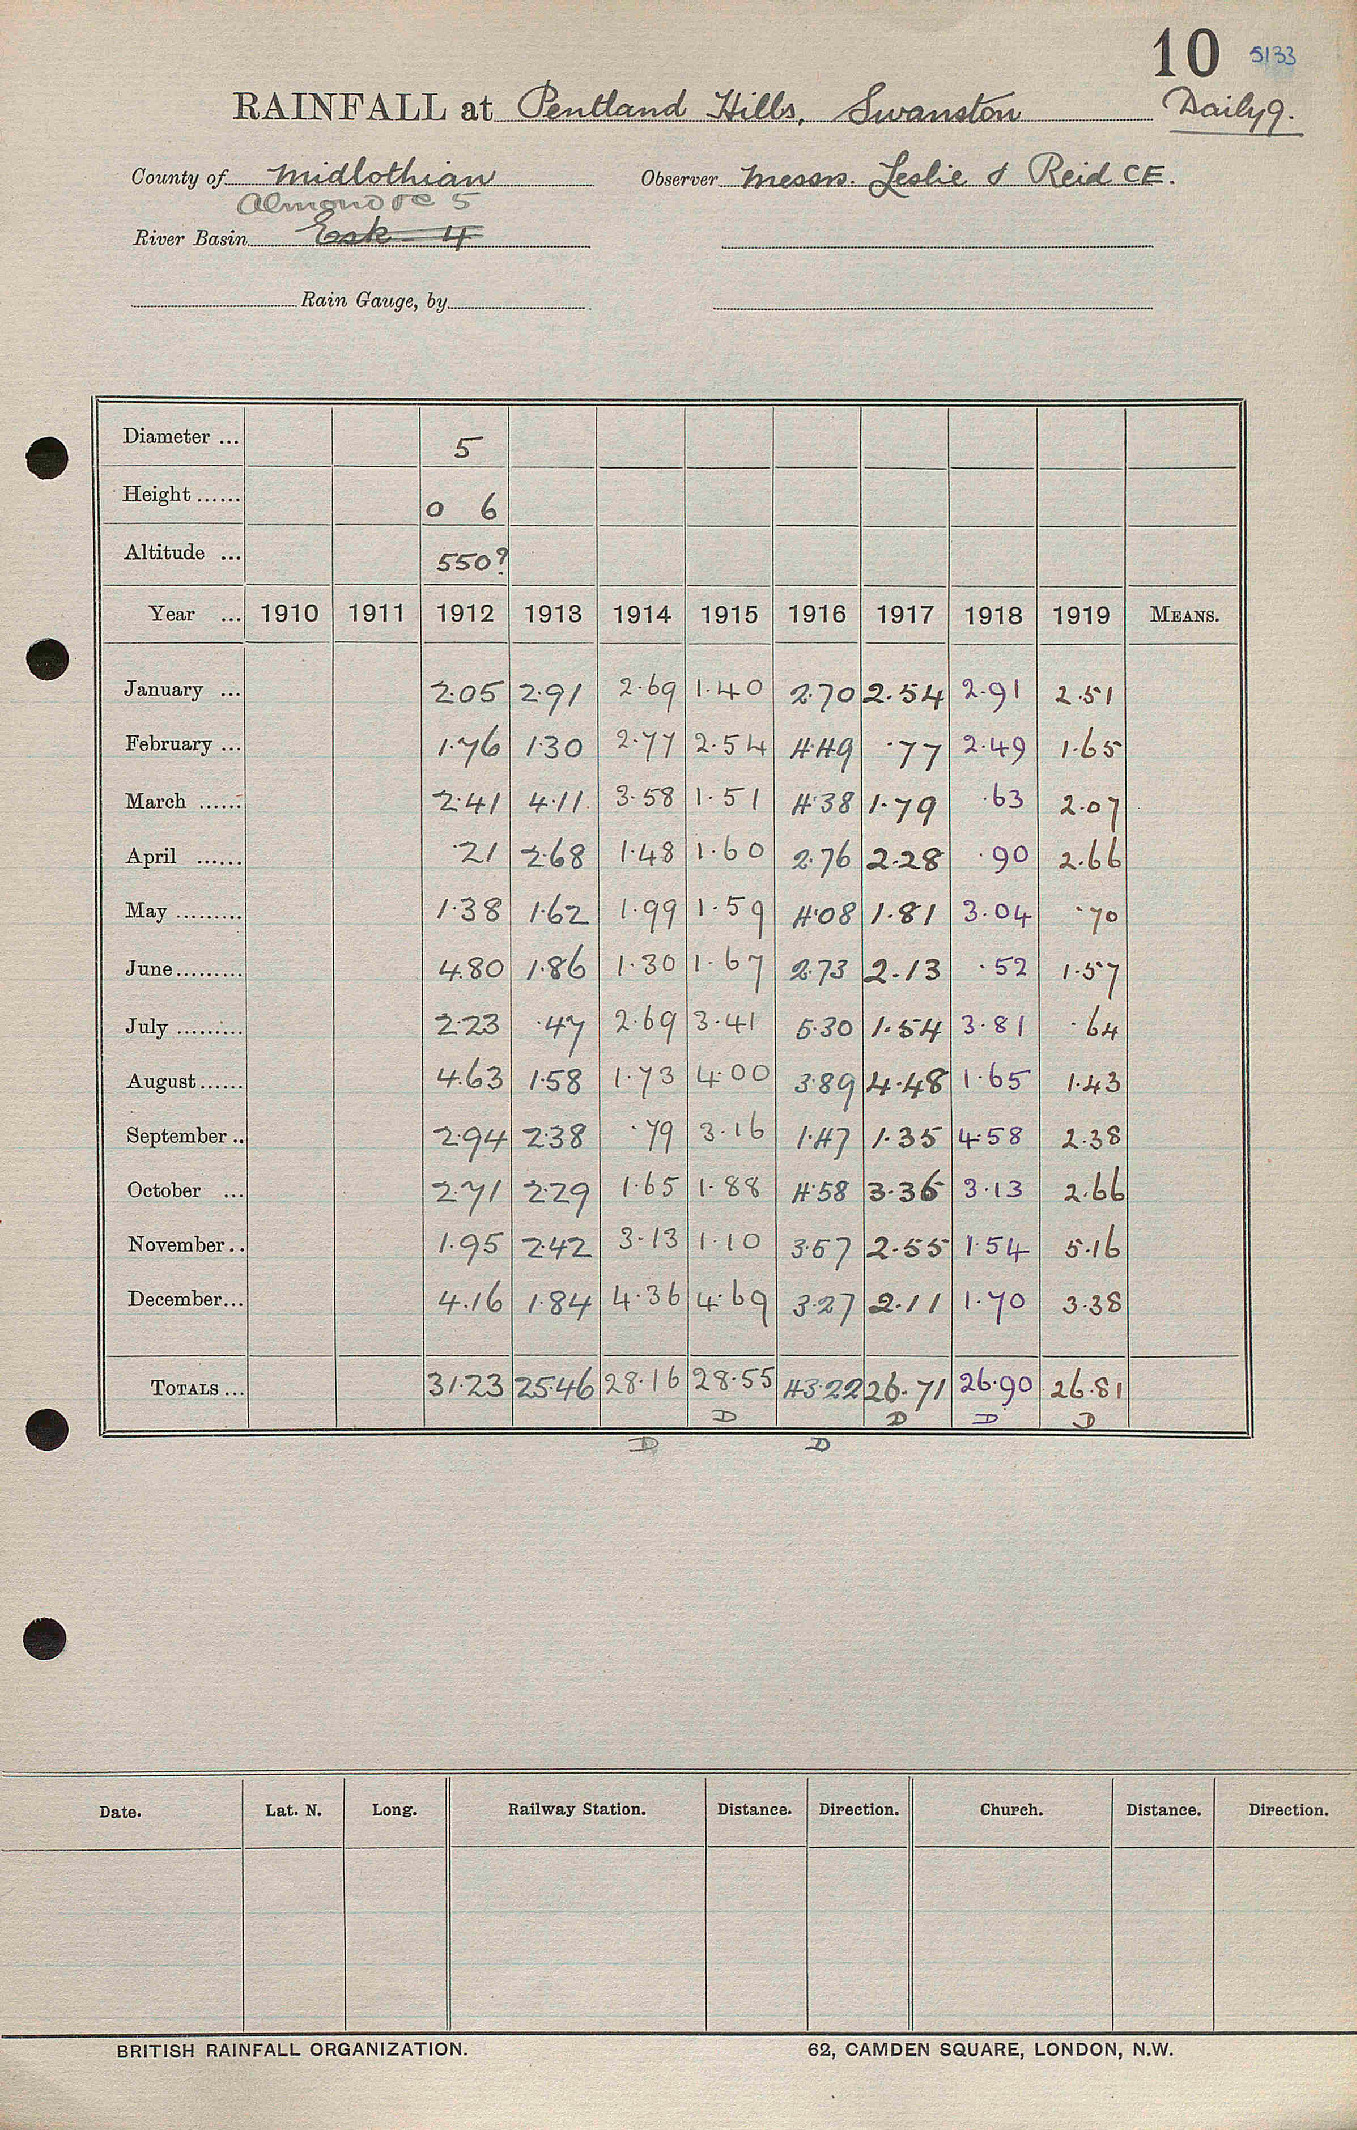 10 5133
RAINFALL at Pentland Hills, Swanston Daily 9.
County of Midlothian Observer Messrs. Leslie & Reid CE.
Almond 5
River Basin Esk 4
Rain Gauge, by
Diameter ... 5
Height ...... 0 6
Altitude ... 550?
Year ... 1910 1911 1912 1913 1914 1915 1916 1917 1918 1919 MEANS.
January ... 2.05 2.91 2.69 1.40 2.70 2.54 2.91 2.51
February ... 1.76 1.30 2.77 2.54 4.49 .77 2.49 1.65
March ...... 2.41 4.11 3.58 1.51 4.38 1.79 .63 2.07
April ...... .21 2.68 1.48 1.60 2.76 2.28 .90 2.66
May ......... 1.38 1.62 1.99 1.59 4.08 1.81 3.04 .70
June ......... 4.80 1.86 1.30 1.67 2.73 2.13 .52 1.57
July ......... 2.23 .47 2.69 3.41 5.30 1.54 3.81 .64
August ...... 4.63 1.58 1.73 4.00 3.89 4.48 1.65 1.43
September .. 2.94 2.38 .79 3.16 1.47 1.35 4.58 2.38
October ... 2.71 2.29 1.65 1.88 4.58 3.36 3.13 2.66
November .. 1.95 2.42 3.13 1.10 3.57 2.55 1.54 5.16
December ... 4.16 1.84 4.36 4.69 3.27 2.11 1.70 3.38
TOTALS ... 31.23 25.46 28.16 28.55 43.22 26.71 26.90 26.81
D D D D
D D
Date. Lat. N. Long. Railway Station. Distance. Direction. Church. Distance. Direction.
BRITISH RAINFALL ORGANIZATION. 62, CAMDEN SQUARE, LONDON, N.W.